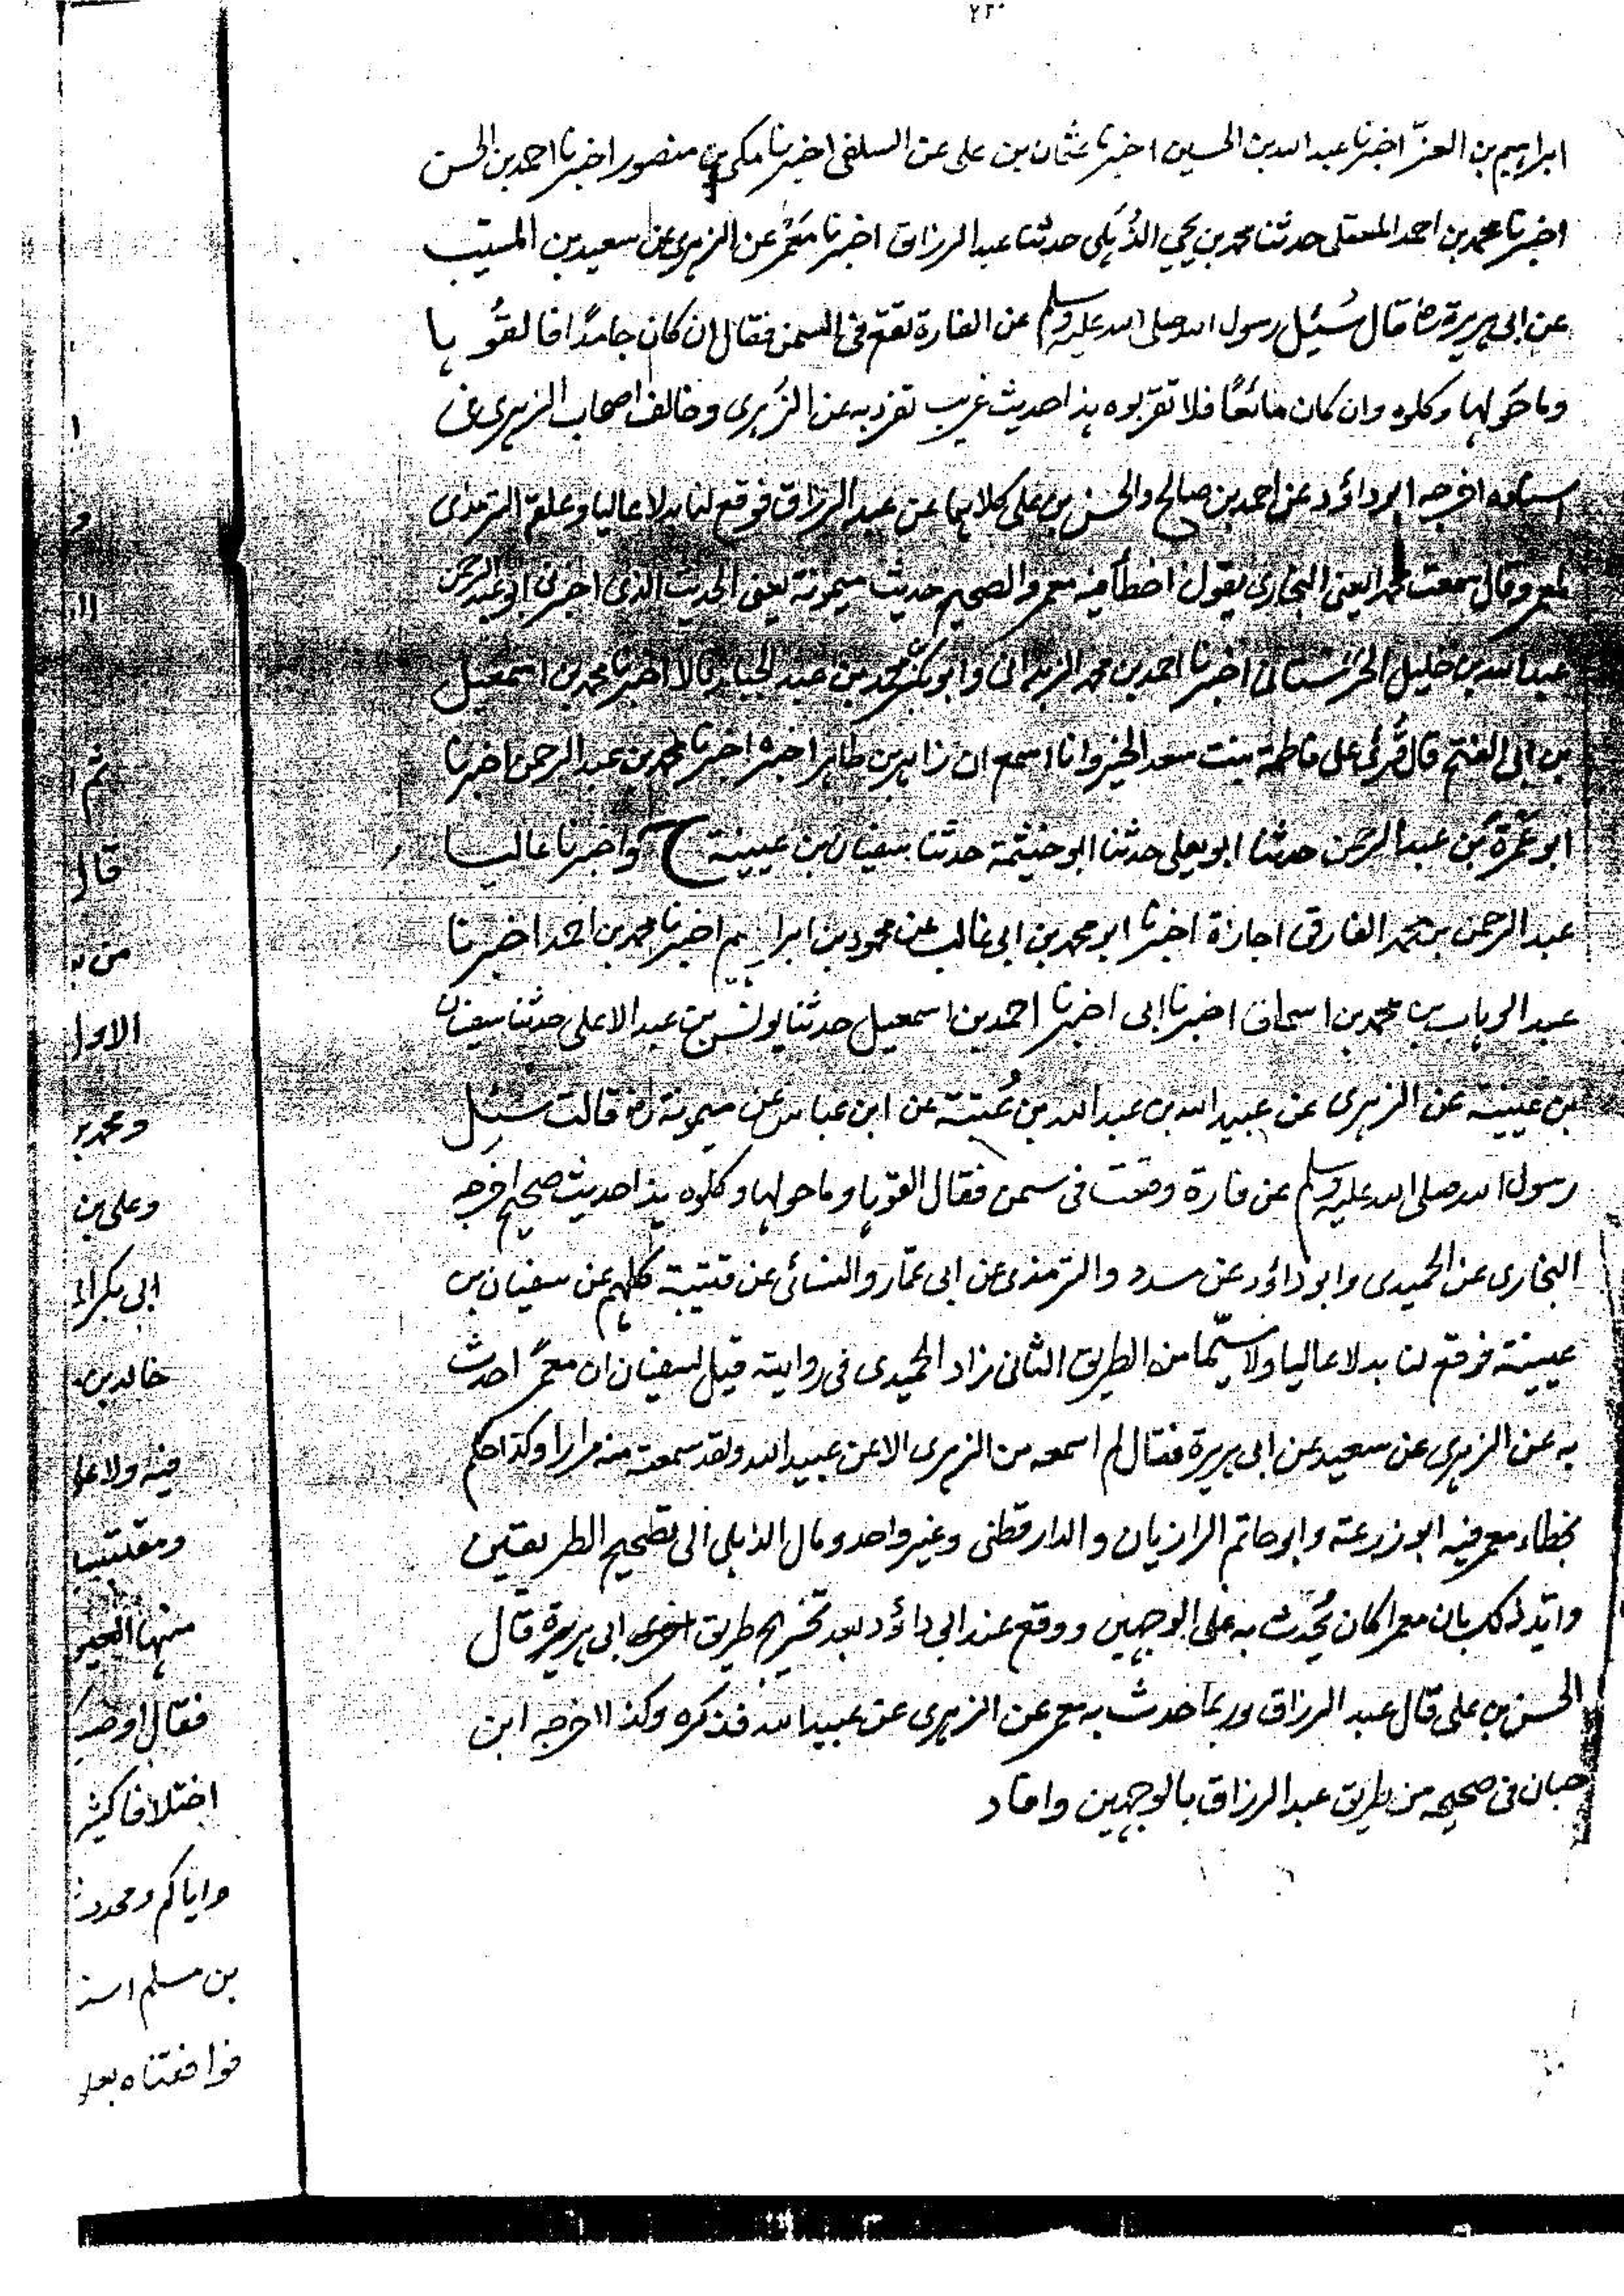 ٢٢٠
ابراهيم بن العزّ اخبرنا عبد الله بن الحسين اخبرنا عثمان بن على عن السلفى اخبرنا مكى بن منصور اخبرنا احمد بن الحسن
اخبرنا محمد بن احمد المعقلى حدثنا محمد بن يحيي الذُهَلى حدثنا عبد الرزاق اخبرنا مَعْمَر عن الزهرى عن سعيد بن المسيّب
عن ابى هريرة رضـ قال سُئِل رسول الله صلى الله عليه وسلم عن الفارة تقع فى السمن فقال ان كان جامدًا فالقُوها
وما حَولها وكلوه وان كان مائعًا فلا تقرّبوه هذا حديث غريب تفرد به عن الزُهرى وخالف اصحاب الزهرى فى
اسناده اخرجه ابو داؤد عن احمد بن صالح والحسن بن على كلاهما عن عبد الرزاق فوقع لنا بدلا عاليا وعلقه الترمذى
لمعمر وقال سمعت محمدا يعنى البخارى يقول اخطأ فيه معمر والصحيح حديث ميمونة يعنى الحديث الذى اخبرنى ابو عبد الرحمن
عبد الله بن خليل الحرستانى اخبرنا احمد بن محمد الزبدانى وابو بكر محمد بن عبد الجبار قالا اخبرنا محمد بن اسمعيل
بن ابى الفتح قال قُرئ على فاطمة بنت سعد الخير وانا اسمع ان زاهر بن طاهر اخبره اخبرنا محمد بن عبد الرحمن اخبرنا
ابو عمرة بن عبد الرحمن حدثنا ابو يعلى حدثنا ابو خيثمة حدثنا سفيان بن عيينة ح واخبرنا عاليا
عبد الرحمن بن محمد الفارقى اجازة اخبرنا ابو محمد بن ابى غالب عن محمود بن ابراهيم اخبرنا محمد بن احمد اخبرنا
عبد الوهاب بن محمد بن اسحاق اخبرنا ابى اخبرنا احمد بن اسمعيل حدثنا يونس بن عبد الاعلى حدثنا سفيان
بن عيينة عن الزهرى عن عبيد الله بن عبد الله بن عُتبة عن ابن عباس عن ميمونة رضـ قالت سُئِل
رسول الله صلى الله عليه وسلم عن فارة وقعت فى سمن فقال القوها وما حولها وكلوه هذا حديث صحيح اخرجه
البخارى عن الحميدى وابو داؤد عن مسدد والترمذى عن ابى عمّار والنسائى عن قتيبة كلهم عن سفيان بن
عيينة فوقع لنا بدلا عاليا ولا سيّما من الطريق الثانى زاد الحميدى فى روايته قيل لسفيان ان معمرًا حدث
به عن الزهرى عن سعيد عن ابى هريرة فقال لم اسمعه من الزهرى الا عن عبيد الله ولقد سمعته منه مرارا وكذا حكم
بخطاء معمر فيه ابو زرعة وابو حاتم الرازيان والدارقطنى وغير واحد ومال الذهلى الى تصحيح الطريقين
وايّد ذلك بان معمرا كان يُحدث به على الوجهين ووقع عند ابى داؤد بعد تخريج طريق ابى هريرة قال
الحسن بن على قال عبد الرزاق وربما حدث به معمر عن الزهرى عن عبيد الله فذكره وكذا اخرجه ابن
حبان فى صحيحه من طريق عبد الرزاق بالوجهين وافاد
ثم
قال
من
الاول
وعلى بن
خالد بن
فيه ولا
منها
فقال
اختلافا
واياكم
بن مسلم
فوافقناه